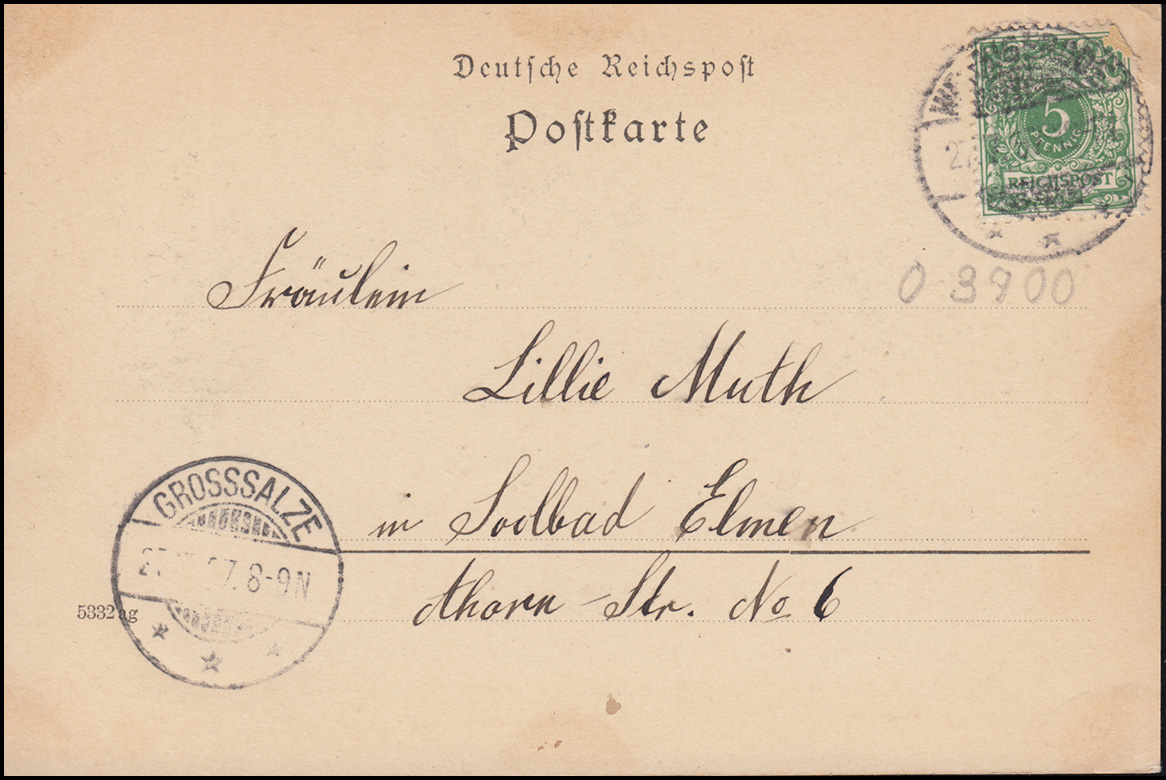 Deutsche Reichspost
Postkarte
5
PFENNIG
REICHSPOST
27.
O 3900
Fräulein
Lillie Muth
in Soolbad Elmen
Ahorn-Str. No 6
GROSSSALZE
27. 97. 8-9N
5332 ag